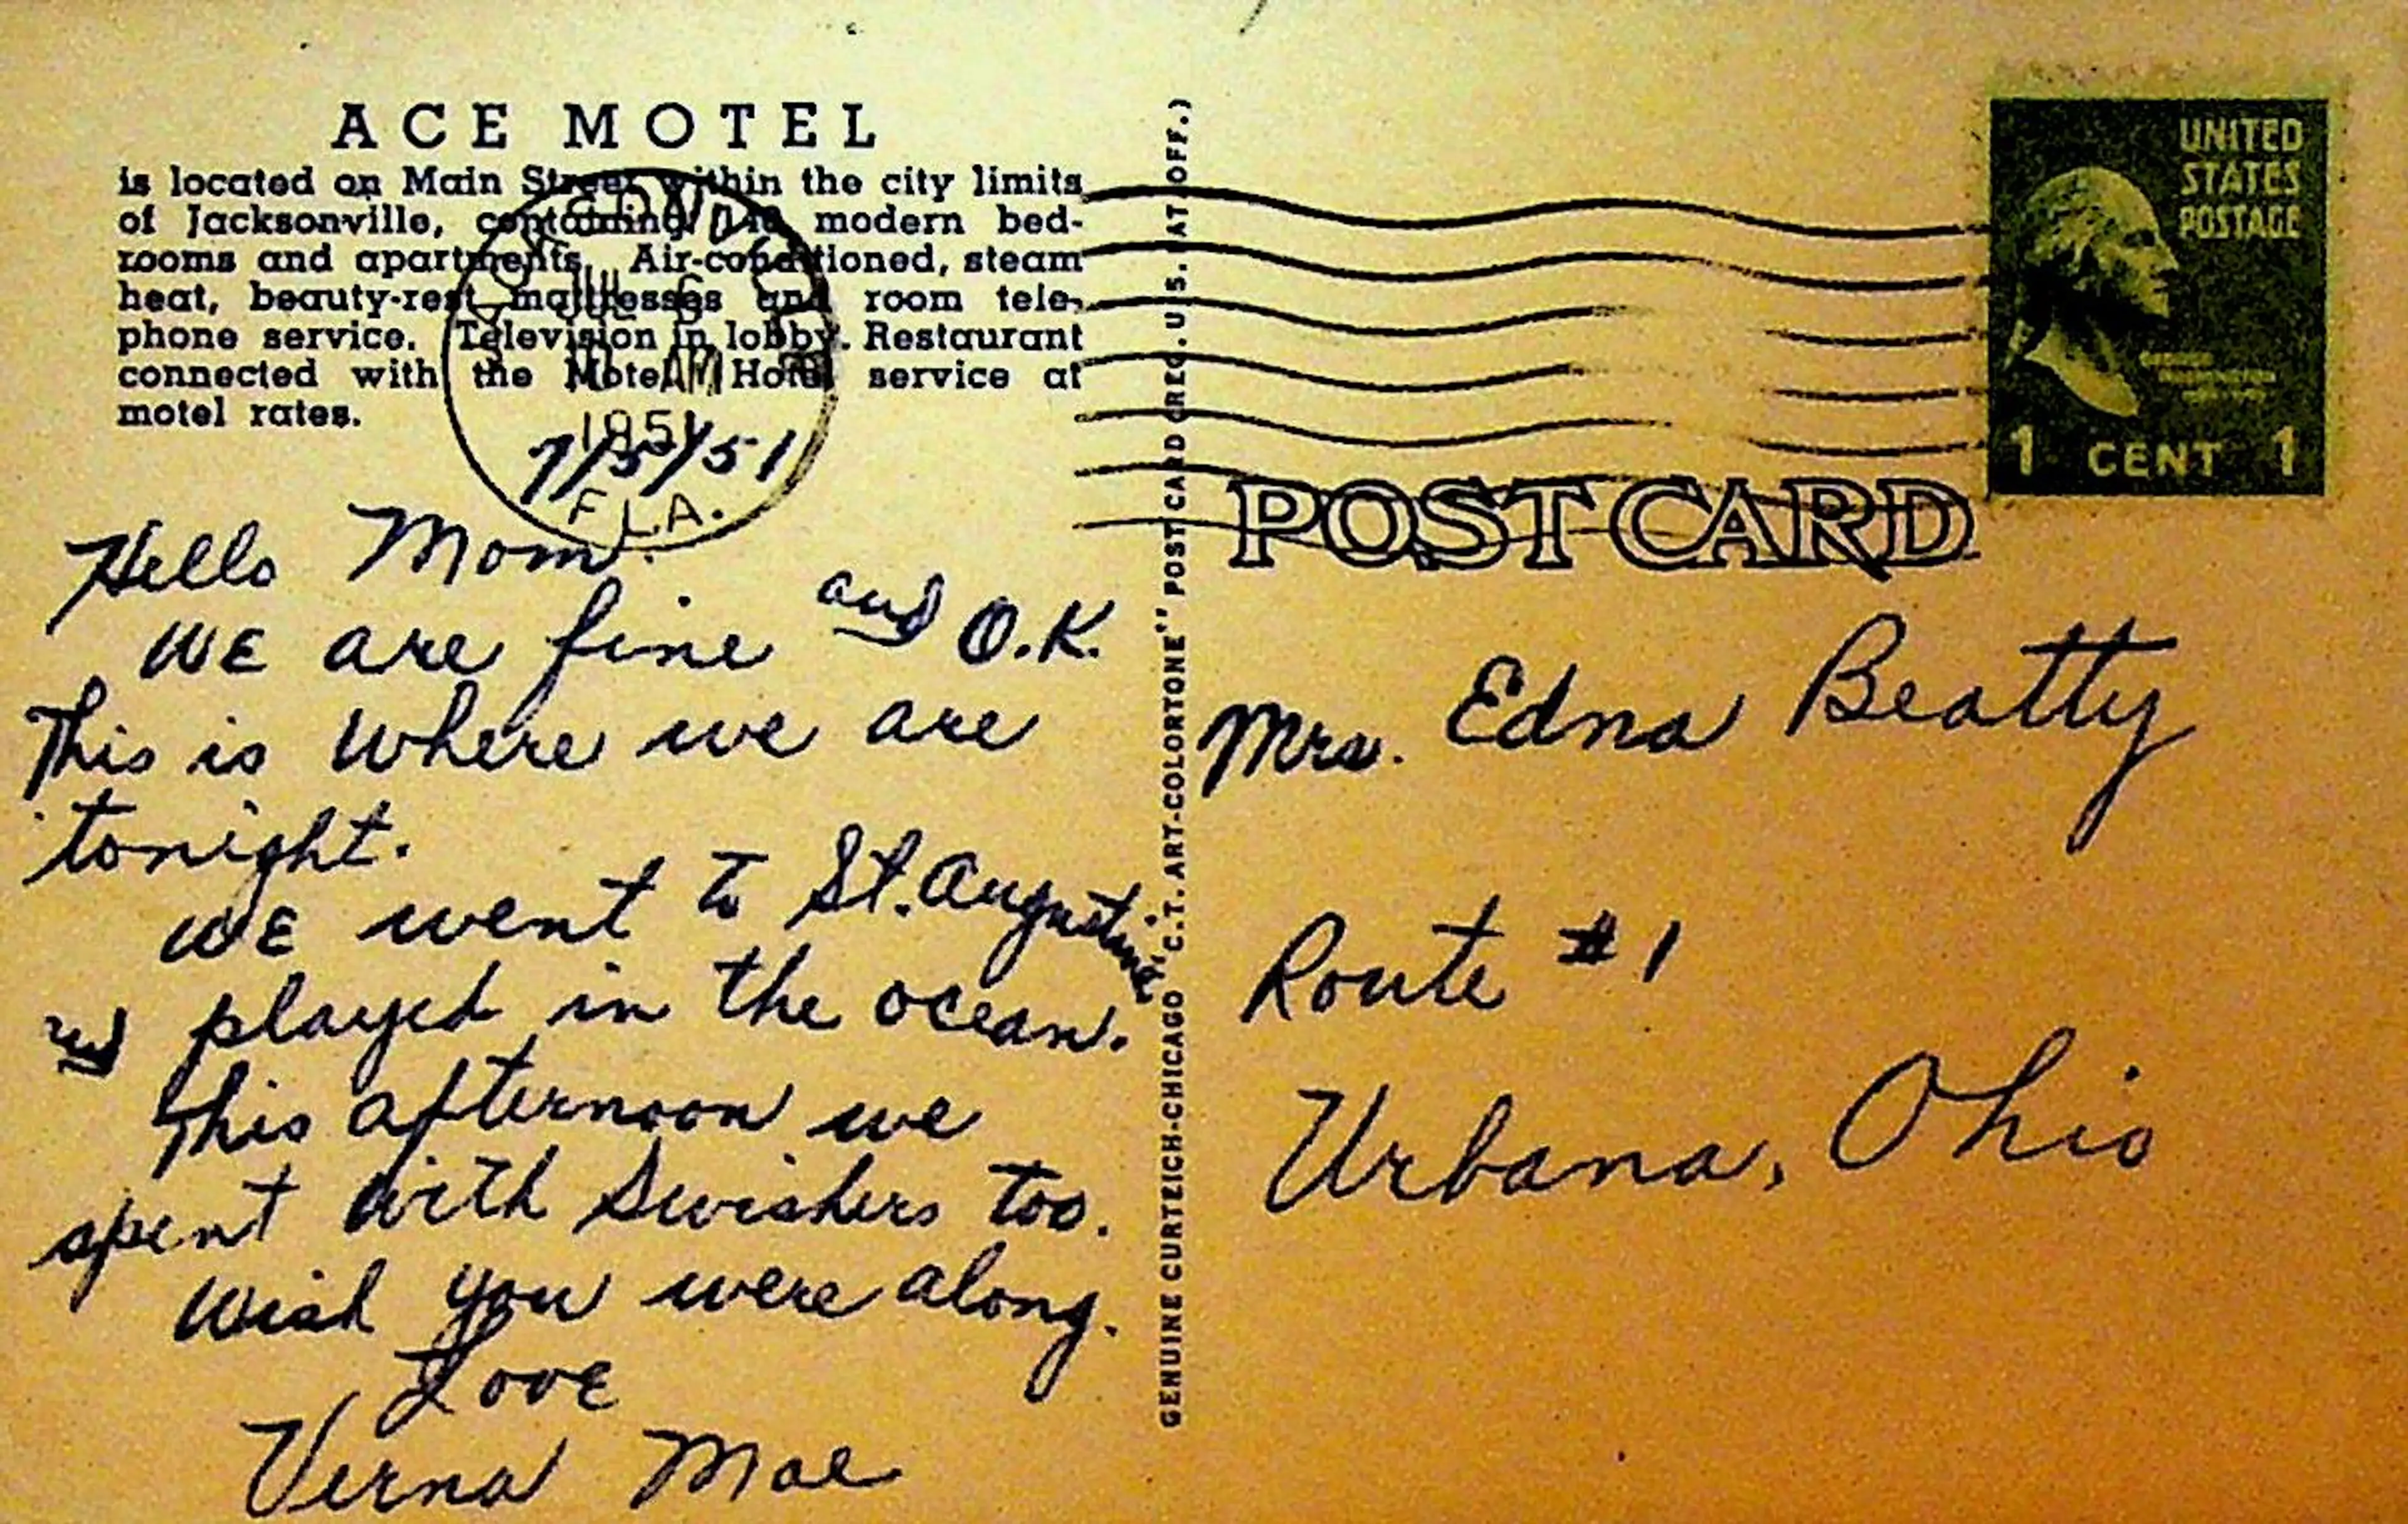 ACE MOTEL
is located on Main Street within the city limits
of Jacksonville, containing modern bed-
rooms and apartments. Air-conditioned, steam
heat, beauty-rest mattresses and room tele-
phone service. Television in lobby. Restaurant
connected with the Motel. Hotel service at
motel rates.
1951
FLA.
7/5/51
Hello Mom.
WE are fine and O.K.
This is where we are
tonight.
WE went to St. Augustine
and played in the ocean.
This afternoon we
spent with Swishers too.
Wish you were along.
Love
Verna Mae
GENUINE CURTEICH-CHICAGO "C.T. ART-COLORTONE" POST CARD (REG. U.S. PAT. OFF.)
UNITED
STATES
POSTAGE
1 CENT 1
POST CARD
Mrs. Edna Beatty
Route #1
Urbana, Ohio